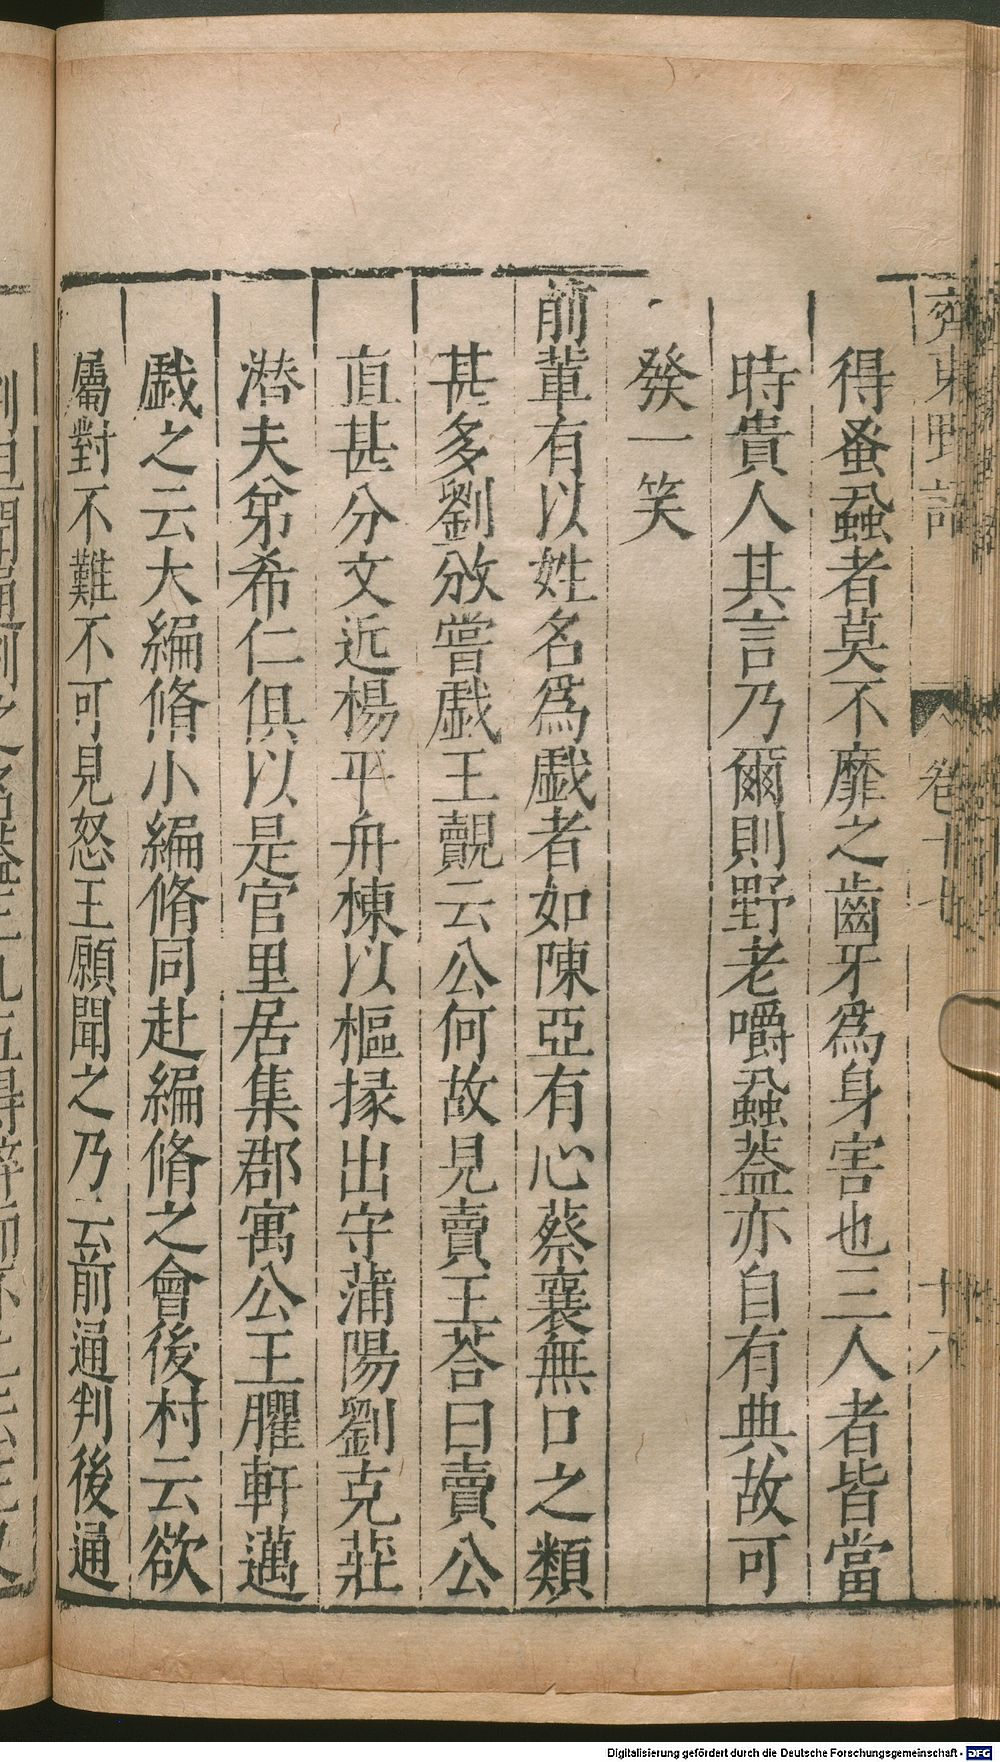 齊東野語 卷十七 十八
得蚤蝨者莫不靡之齒牙爲身害也三人者皆當
時貴人其言乃爾則野老嚼蝨葢亦自有典故可
發一笑
前輩有以姓名爲戲者如陳亞有心蔡襄無口之類
甚多劉攽嘗戲王覿云公何故見賣王荅曰賣公
直甚分文近楊平舟棟以樞掾出守蒲陽劉克莊
潛夫弟希仁俱以是官里居集郡寓公王臞軒邁
戲之云大編脩小編脩同赴編脩之會後村云欲
屬對不難不可見怒王願聞之乃云前通判後通
Digitalisierung gefördert durch die Deutsche Forschungsgemeinschaft - DFG